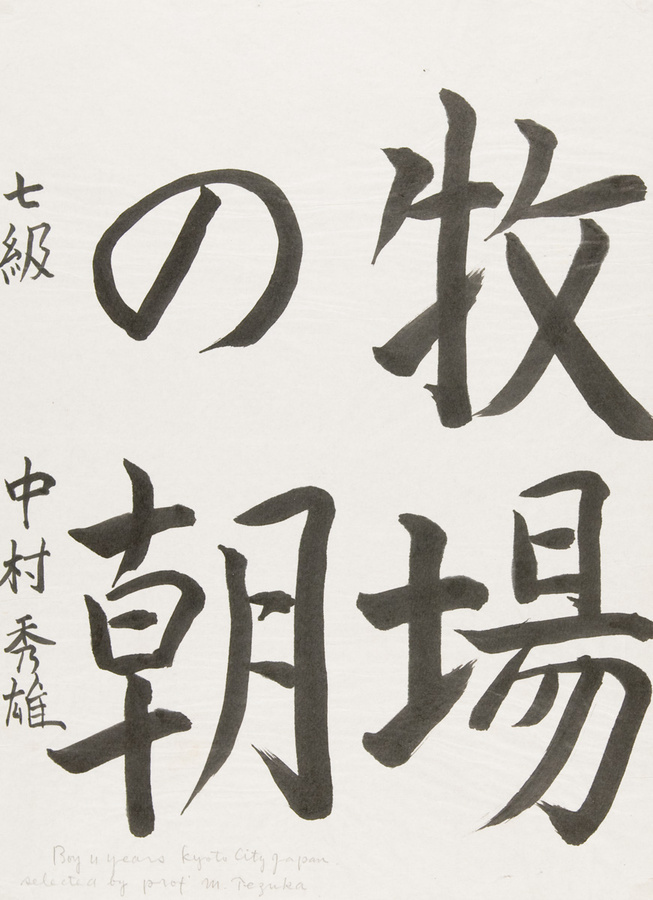 牧場
の朝
七級
中村秀雄
Boy 11 years Kyoto City Japan
selected by prof M. Tezuka